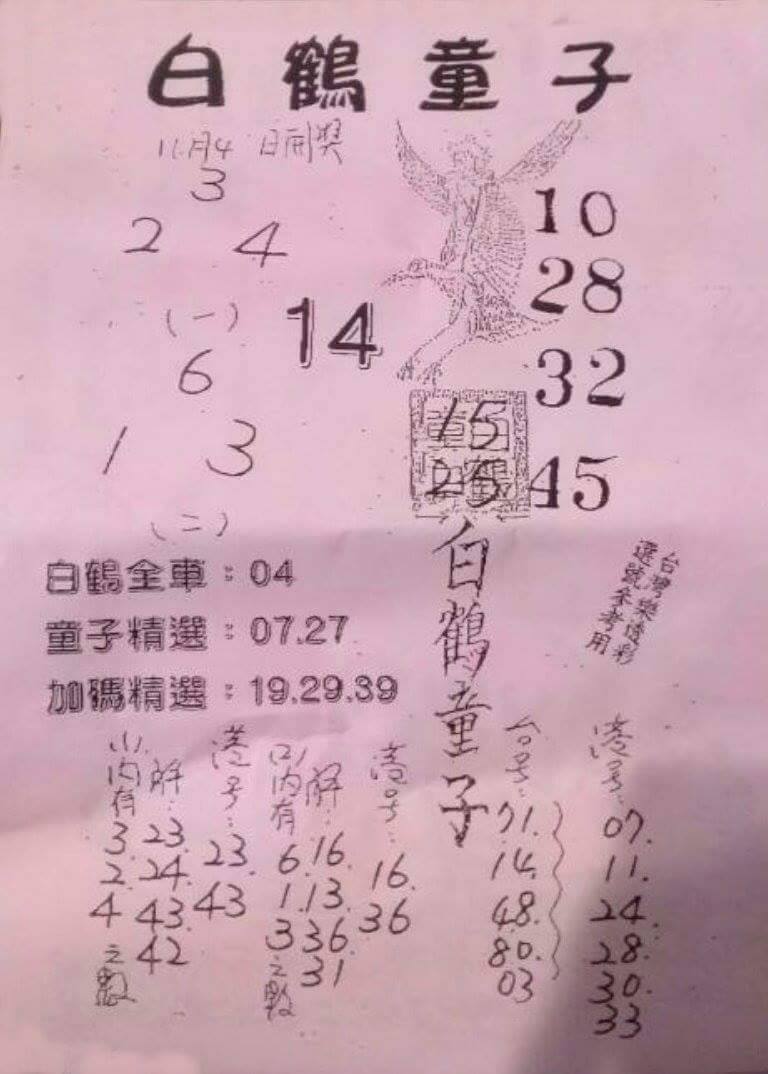 白鶴童子
11月4日開獎
3
2 4
(一)
6
1 3
(二)
14
10
28
32
45
15
25
白鶴全車：04
童子精選：07.27
加碼精選：19.29.39
白鶴童子
台灣樂透彩
選號參考用
(一)內有
3.
2.
4
之數
解：
23.
24.
43.
42
港号：
23.
43
(二)內有
6.
1.
3
之數
解：
16.
13.
36
31
港号：
16.
36
台号：
71.
14.
48.
80.
03
港号：
07.
11.
24.
28.
30.
33